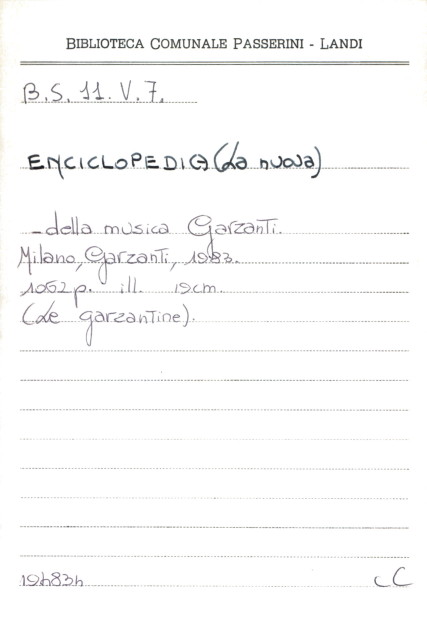 BIBLIOTECA COMUNALE PASSERINI - LANDI
B.S. 11. V. 7.
ENCICLOPEDIA (La nuova)
- della musica Garzanti.
Milano, Garzanti, 1983.
1062 p. ill. 19 cm.
(Le garzantine).
CC